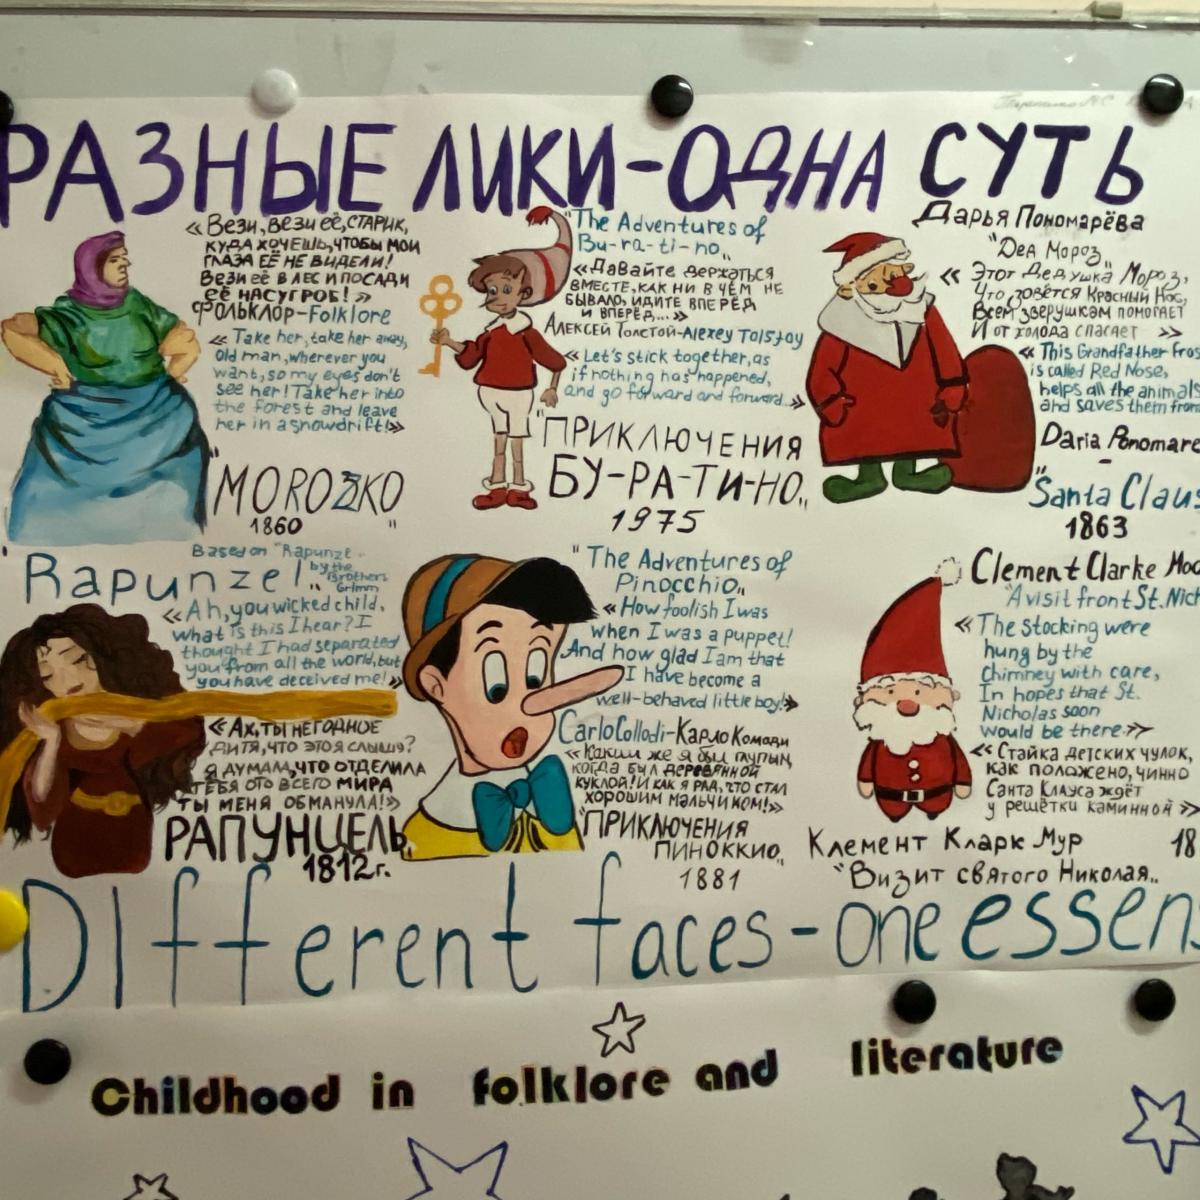 РАЗНЫЕ ЛИКИ-ОДНА СУТЬ
« Вези, вези её, СТАРИК,
куда хочешь, чтобы мои
глаза её не видели!
Вези её в лес и посади
её на сугроб! »
Фольклор-Folklore
« Take her, take her away,
old man, wherever you
want, so my eyes don't
see her! Take her into
the forest and leave
her in a snowdrift!»
"MOROZKO"
1860
"The Adventures of
Bu-ra-ti-no„
«Давайте держаться
вместе, как ни в чём не
бывало, идите вперёд
и вперёд...»
Алексей Толстой-Alexey Tolstoy
« Let's stick together, as
if nothing has happened,
and go forward and forward...»
"ПРИКЛЮЧЕНИЯ
БУ-РА-ТИ-НО„
1975
Дарья Пономарёва
"Дед Мороз„
« Этот Дедушка Мороз,
Что зовётся Красный Нос,
Всем зверушкам помогает
И от холода спасает »
« This Grandfather Fros
is called Red Nose,
helps all the animals
and saves them from
Daria Ponomare
"Santa Claus
1863
"Rapunzel„
Based on "Rapunze
by the
Brothers
Grimm
« Ah, you wicked child,
what is this I hear? I
thought I had separated
you from all the world, but
you have deceived me!»
« Ах, ты негодное
дитя, что это я слышу?
я думала, что отделила
тебя ото всего мира
ты меня обманула!»
РАПУНЦЕЛЬ„
1812г.
"The Adventures of
Pinocchio„
« How foolish I was
when I was a puppet!
And how glad I am that
I have become a
well-behaved little boy!»
Carlo Collodi-Карло Коллоди
«Каким же я был глупым,
когда был деревянной
куклой! И как я рад, что стал
хорошим мальчиком!»
"ПРИКЛЮЧЕНИЯ
ПИНОККИО„
1881
Clement Clarke Moo
"A visit front St. Nich
« The stocking were
hung by the
chimney with care,
In hopes that St.
Nicholas soon
would be there.»
« Стайка детских чулок,
как положено, чинно
Санта Клауса ждёт
у решётки каминной »
Клемент Кларк Мур 18
"Визит святого Николая„
DIfferent faces-one essens
Childhood in folklore and literature